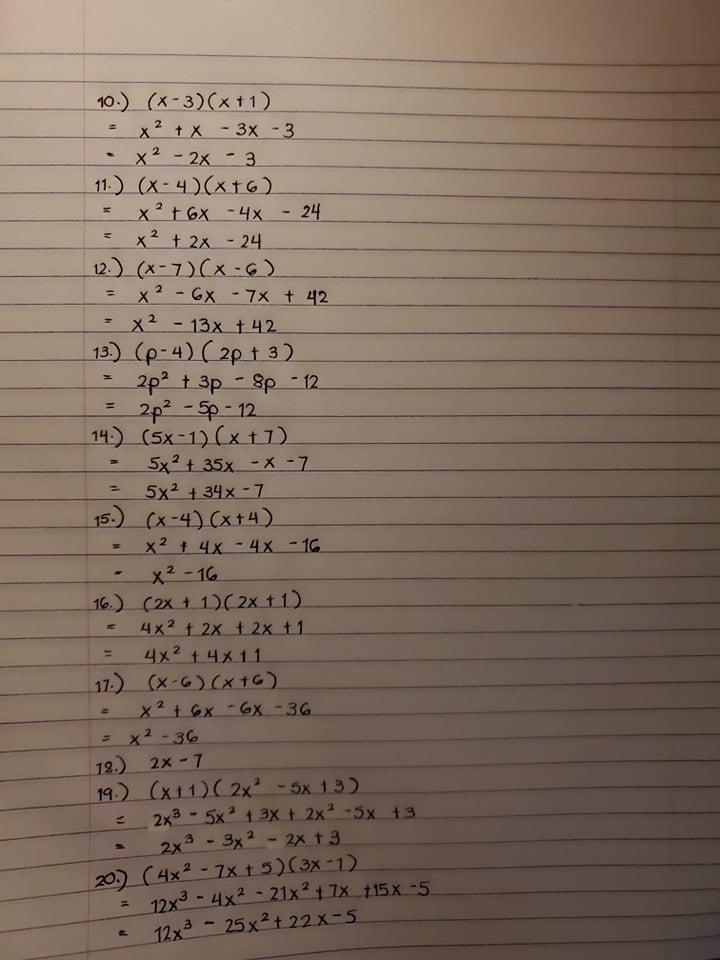 10.) (x-3)(x+1)
= x² + x - 3x - 3
= x² - 2x - 3
11.) (x-4)(x+6)
= x² + 6x - 4x - 24
= x² + 2x - 24
12.) (x-7)(x-6)
= x² - 6x - 7x + 42
= x² - 13x + 42
13.) (p-4)(2p+3)
= 2p² + 3p - 8p - 12
= 2p² - 5p - 12
14.) (5x-1)(x+7)
= 5x² + 35x - x - 7
= 5x² + 34x - 7
15.) (x-4)(x+4)
= x² + 4x - 4x - 16
= x² - 16
16.) (2x+1)(2x+1)
= 4x² + 2x + 2x + 1
= 4x² + 4x + 1
17.) (x-6)(x+6)
= x² + 6x - 6x - 36
= x² - 36
18.) 2x - 7
19.) (x+1)(2x² - 5x + 3)
= 2x³ - 5x² + 3x + 2x² - 5x + 3
= 2x³ - 3x² - 2x + 3
20.) (4x² - 7x + 5)(3x-1)
= 12x³ - 4x² - 21x² + 7x + 15x - 5
= 12x³ - 25x² + 22x - 5